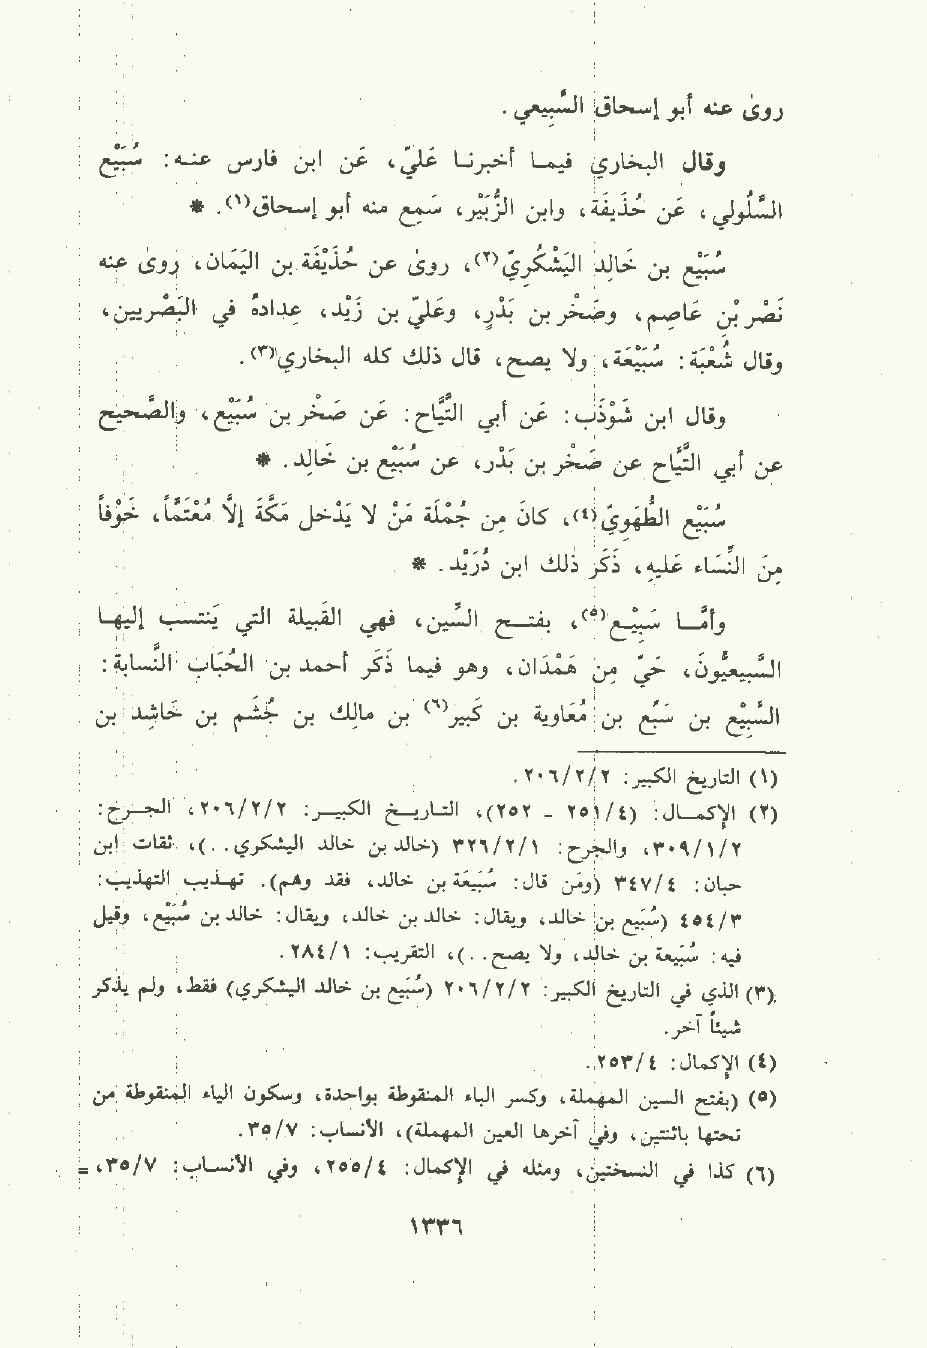 روىٰ عنه أبو إسحاق السَّبِيعي.
وقال البخاري فيمـا أخبرنـا عَليّ، عَن ابن فارس عنـه: سُبَيْع
السَّلُولي، عَن حُذَيفَة، وابن الزُّبَيْر، سَمِع منه أبو إسحاق(١). *
سُبَيْع بن خَالِد اليَشْكُرِيّ(٢)، روىٰ عن حُذَيْفَة بن اليَمَان، روىٰ عنه
نَصْر بْن عَاصِم، وصَخْر بن بَدْر، وعَليّ بن زَيْد، عِدادُه في البَصْريين،
وقال شُعْبَة: سُبَيْعَة، ولا يصح، قال ذلك كله البخاري(٣).
وقال ابن شَوْذَب: عَن أبي التَّيَّاح: عَن صَخْر بن سُبَيْع، والصَّحيح
عن أبي التَّيَّاح عن صَخْر بن بَدْر، عن سُبَيْع بن خَالِد. *
سُبَيْع الطُّهَوِيّ(٤)، كانَ مِن جُمْلَة مَنْ لا يَدْخل مَكَّة إلَّا مُعْتَمَّاً، خَوْفاً
مِنَ النِّسَاء عَليهِ، ذَكَر ذلك ابن دُرَيْد. *
وأمَّـا سَبِيْـع(٥)، بفتـح السِّين، فهي القَبيلة التي يَنتسب إليهـا
السَّبيعيُّونَ، حَيّ مِن هَمْدَان، وهو فيما ذَكَر أحمد بن الحُبَاب النَّسابة:
السَّبِيْع بن سَبُع بن مُعَاوية بن كَبير(٦) بن مالِك بن جُشَم بن حَاشِد بن
(١) التاريخ الكبير: ٢/٢/٢٠٦.
(٢) الإكمـال: (٤/٢٥١ - ٢٥٢)، التـاريـخ الكبيـر: ٢/٢/٢٠٦، الجـرح:
٢/١/٣٠٩، والجرح: ١/٢/٣٢٦ (خالد بن خالد اليشكري. .)، ثقات ابن
حبان: ٤/٣٤٧ (ومن قال: سُبَيْعَة بن خالد، فقد وهم). تهذيب التهذيب:
٣/٤٥٤ (سُبَيع بن خالد، ويقال: خالد بن خالد، ويقال: خالد بن سُبَيْع، وقيل
فيه: سُبَيعة بن خالد، ولا يصح. .)، التقريب: ١/٢٨٤.
(٣) الذي في التاريخ الكبير: ٢/٢/٢٠٦ (سُبَيع بن خالد اليشكري) فقط، ولم يذكر
شيئاً آخر.
(٤) الإكمال: ٤/٢٥٣.
(٥) (بفتح السين المهملة، وكسر الباء المنقوطة بواحدة، وسكون الياء المنقوطة من
تحتها باثنتين، وفي آخرها العين المهملة)، الأنساب: ٧/٣٥.
(٦) كذا في النسختين، ومثله في الإكمال: ٤/٢٥٥، وفي الأنساب: ٧/٣٥، =
١٣٣٦